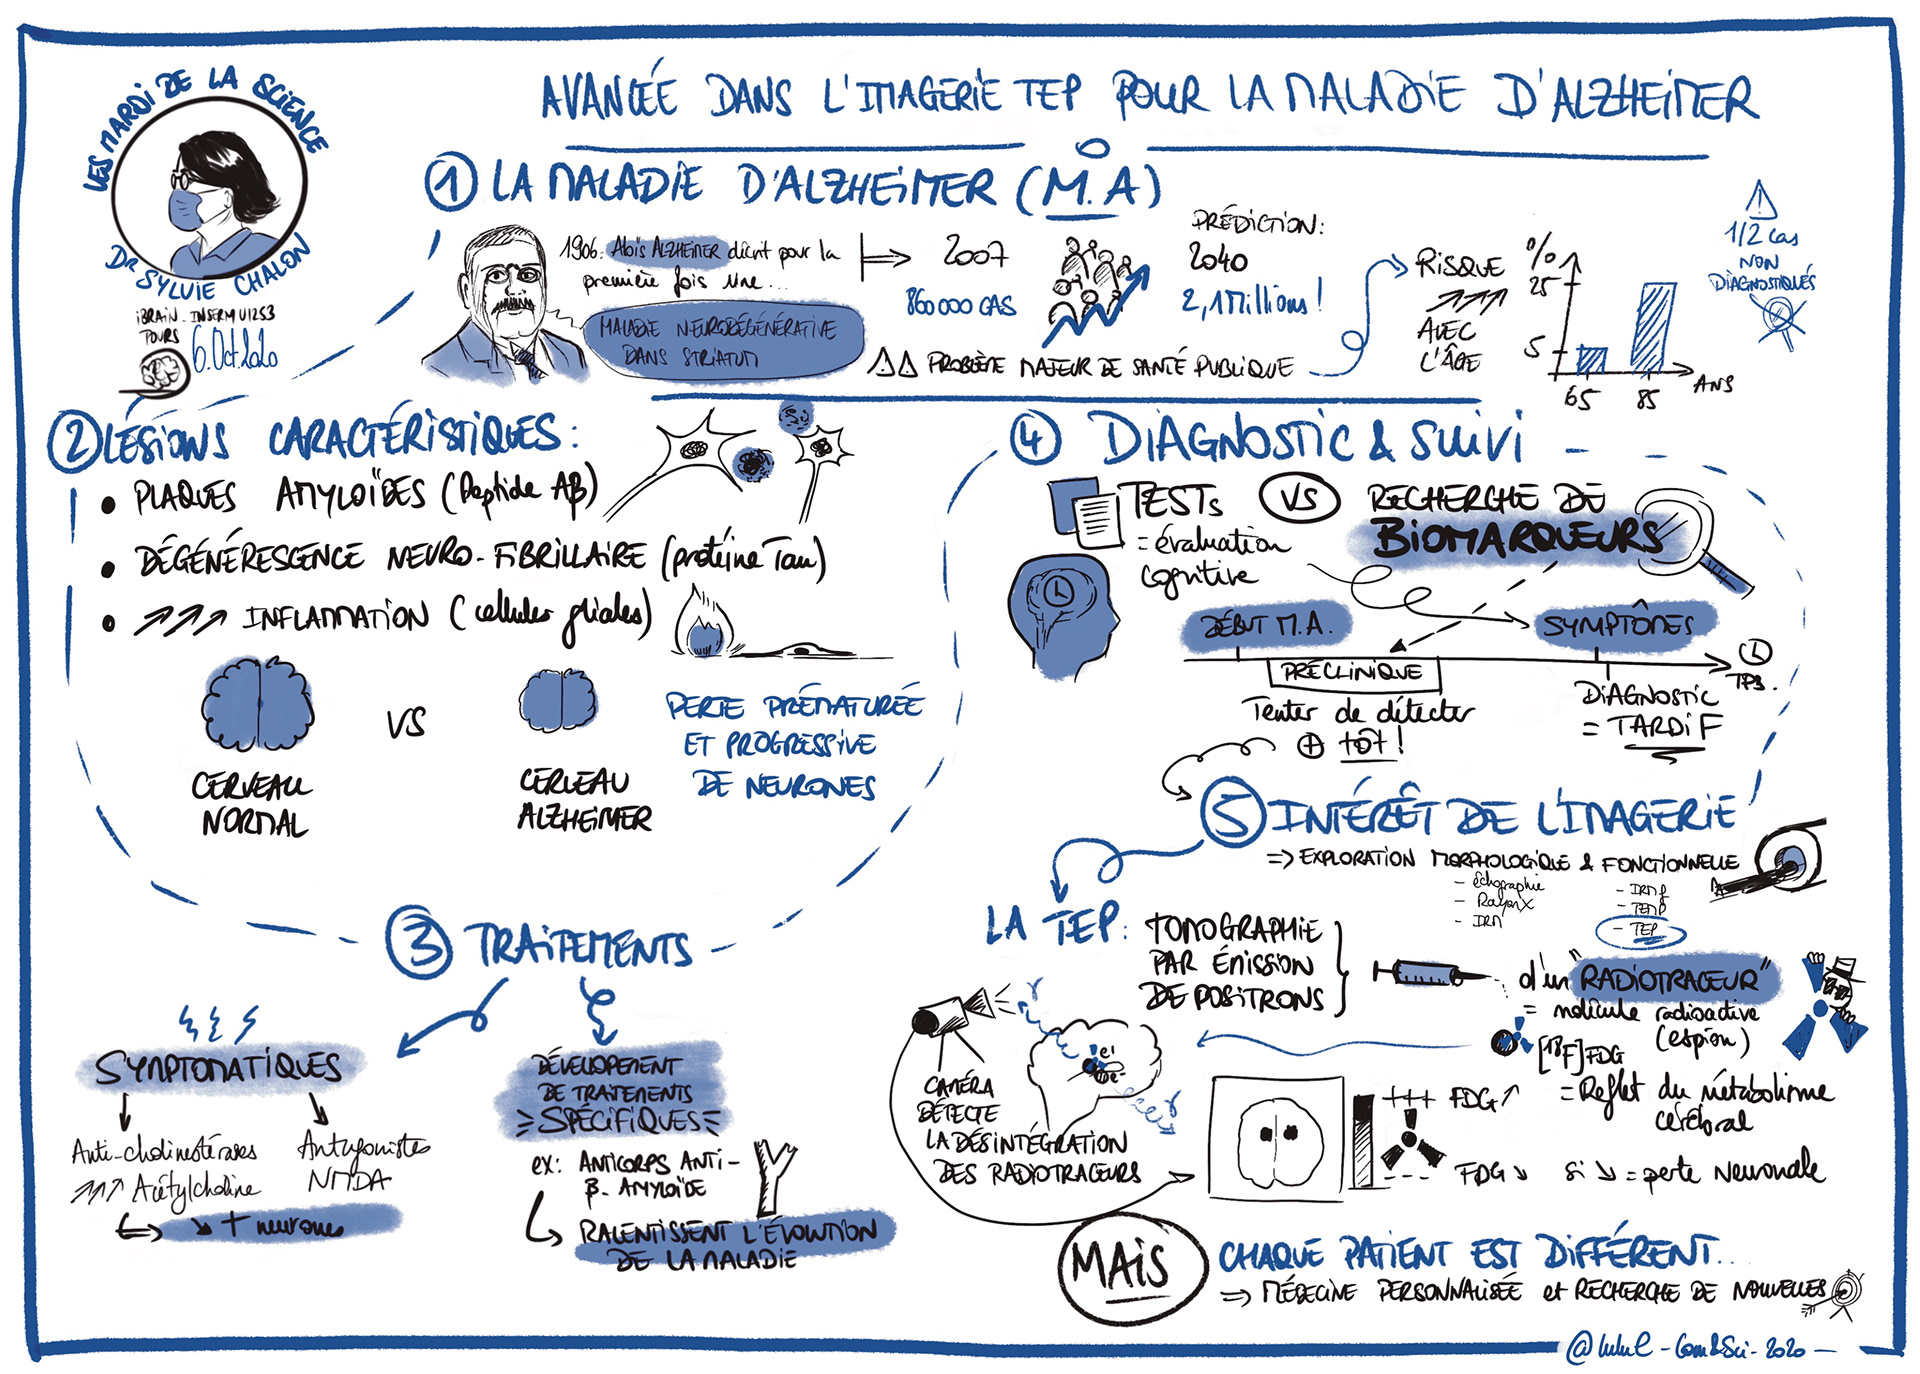 LES MARDI DE LA SCIENCE
DR SYLVIE CHALON
iBRAIN - INSERM U1253
TOURS
6 Oct. 2020
AVANCÉE DANS L'IMAGERIE TEP POUR LA MALADIE D'ALZHEIMER
① LA MALADIE D'ALZHEIMER (M.A)
1906: Aloïs ALZHEIMER décrit pour la
première fois une...
MALADIE NEURODÉGÉNÉRATIVE
DANS STRIATUM
2007
860 000 CAS
PRÉDICTION:
2040
2,1 Millions!
PROBLÈME MAJEUR DE SANTÉ PUBLIQUE
RISQUE
AVEC
L'ÂGE
%
25
5
65
85
ANS
1/2 cas
NON
DIAGNOSTIQUÉS
② LÉSIONS CARACTÉRISTIQUES:
• PLAQUES AMYLOÏDES (Peptide Aβ)
• DÉGÉNÉRESCENCE NEURO-FIBRILLAIRE (protéine Tau)
• ↗↗↗ INFLAMMATION (cellules gliales)
CERVEAU
NORMAL
VS
CERVEAU
ALZHEIMER
PERTE PRÉMATURÉE
ET PROGRESSIVE
DE NEURONES
③ TRAITEMENTS
SYMPTOMATIQUES
Anti-cholinestérases
↗↗↗ Acétylcholine
Antagonistes
NMDA
↘ + neurones
DÉVELOPEMENT
DE TRAITEMENTS
SPÉCIFIQUES
ex: ANTICORPS ANTI-
β-AMYLOÏDE
RALENTISSENT L'ÉVOLUTION
DE LA MALADIE
④ DIAGNOSTIC & SUIVI
TESTS
= évaluation
cognitive
VS
RECHERCHE DE
BIOMARQUEURS
DÉBUT M.A.
SYMPTÔMES
PRÉCLINIQUE
TPS.
Tenter de détecter
⊕ tôt!
DIAGNOSTIC
= TARDIF
⑤ INTÉRÊT DE L'IMAGERIE
⇒ EXPLORATION MORPHOLOGIQUE & FONCTIONNELLE
- échographie
- Rayon X
- IRM
- IRMf
- TEMP
- TEP
LA TEP: TOMOGRAPHIE
PAR ÉMISSION
DE POSITRONS
d'un "RADIOTRACEUR"
= molécule radioactive
(espion)
[18F]FDG
= Reflet du métabolisme
cérébral
CAMÉRA
DÉTECTE
LA DÉSINTÉGRATION
DES RADIOTRACEURS
e+
e-
γ
γ
+++ FDG ↗
--- FDG ↘ si ↘ = perte Neuronale
MAIS
CHAQUE PATIENT EST DIFFÉRENT...
⇒ MÉDECINE PERSONNALISÉE et RECHERCHE DE NOUVELLES
@luluE - Com&Sci - 2020